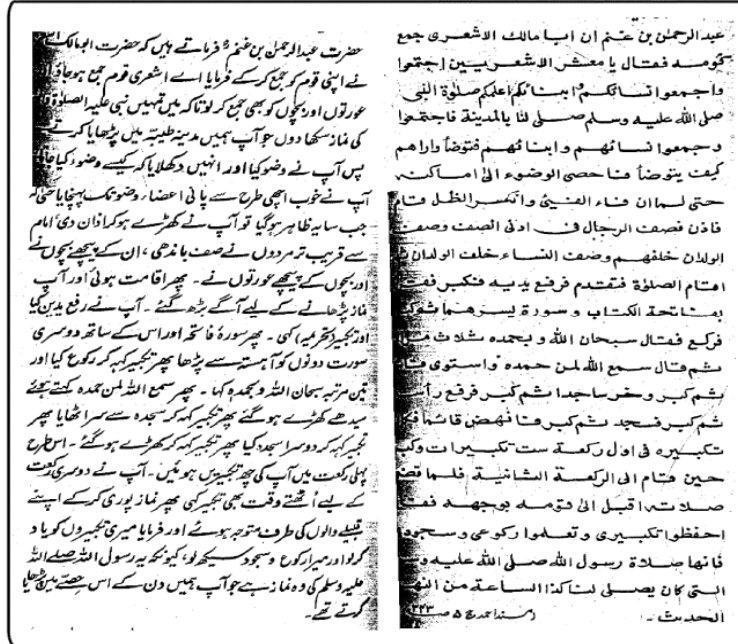 عبد الرحمٰن بن غنم ان ابا مالك الاشعرى جمع
قومه فقال يا معشر الاشعريين اجتمعوا
واجمعوا نسائكم و ابنائكم اعلمكم صلوٰة النبى
صلى الله عليه وسلم صلى لنا بالمدينة فاجتمعوا
وجمعوا نسائهم وابنائهم فتوضأ واراهم
كيف يتوضأ فاحصى الوضوء الى اماكنه
حتى لما ان فاء الفيئ وانكسر الظل قام
فاذن فصف الرجال فى ادنى الصف وصف
الولدان خلفهم وصف النساء خلف الولدان
اقام الصلوٰة فتقدم فرفع يديه فكبر
بفاتحة الكتاب و سورة يسرهما
فركع فقال سبحان الله و بحمده ثلاث
ثم قال سمع الله لمن حمده واستوى
ثم كبر وخر ساجدا ثم كبر فرفع
ثم كبر فسجد ثم كبر فانهض قائما
تكبيره فى اول ركعة ست تكبيرات
حين قام الى الركعة الثانية فلما
صلاته اقبل الى قومه بوجهه
احفظوا تكبيرى و تعلموا ركوعى و سجودى
فانها صلاة رسول الله صلى الله عليه
التى كان يصلى لنا كذا الساعة من
الحديث ۔ (مسند احمد ج ۵ ص ۳۴۳
حضرت عبدالرحمٰن بن غنم فرماتے ہیں کہ حضرت ابومالک
نے اپنی قوم کو جمع کرکے فرمایا اے اشعری قوم جمع ہوجاؤ
عورتوں اور بچوں کو بھی جمع کرلو تاکہ میں تمہیں نبی علیہ الصلوٰة
کی نماز سکھا دوں جو آپ ہمیں مدینہ طیبہ میں پڑھایا کرتے
پس آپ نے وضو کیا اور انہیں دکھلایا کہ کیسے وضوء کیا
آپ نے خوب اچھی طرح سے پانی اعضاء وضو تک پہنچایا حتی کہ
جب سایہ ظاہر ہوگیا تو آپ نے کھڑے ہوکر اذان دی امام
سے قریب تر مردوں نے صف باندھی ، ان کے پیچھے بچوں نے
اور بچوں کے پیچھے عورتوں نے ۔ پھر اقامت ہوئی اور آپ
نماز پڑھانے کے لیے آگے بڑھ گئے ۔ آپ نے رفع یدین کیا
اور تکبیر (تحریمہ) کہی ۔ پھر سورۂ فاتحہ اور اس کے ساتھ دوسری
سورت دونوں کو آہستہ سے پڑھا پھر تکبیر کہہ کر رکوع کیا اور
تین مرتبہ سبحان اللہ وبحمدہ کہا ۔ پھر سمع اللہ لمن حمدہ کہتے ہوئے
سیدھے کھڑے ہوگئے پھر تکبیر کہہ کر سجدہ سے سر اٹھایا پھر
تکبیر کہہ کر دوسرا سجدہ کیا پھر تکبیر کہہ کر کھڑے ہوگئے ۔ اس طرح
پہلی رکعت میں آپ کی چھ تکبیریں ہوئیں ۔ آپ نے دوسری رکعت
کے لیے اُٹھتے وقت بھی تکبیر کہی پھر نماز پوری کرکے اپنے
قبیلے والوں کی طرف متوجہ ہوئے اور فرمایا میری تکبیروں کو یاد
کرلو اور میرا رکوع و سجود سیکھ لو، کیونکہ یہ رسول اللہ صلے اللہ
علیہ وسلم کی وہ نماز ہے جو آپ ہمیں دن کے اس حصے میں پڑھایا
کرتے تھے ۔